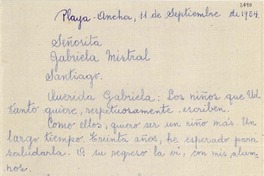 Playa-Ancha, 11 de Septiembre de 1954.
Señorita
Gabriela Mistral
Santiago.
Querida Gabriela: Los niños que Ud.
tanto quiere, respetuosamente escriben.
Como ellos, quero ser un niño más. Un
largo tiempo. Treinta años, he esperado para
saludarla. A su regreso la vi, con mis alum-
nos.